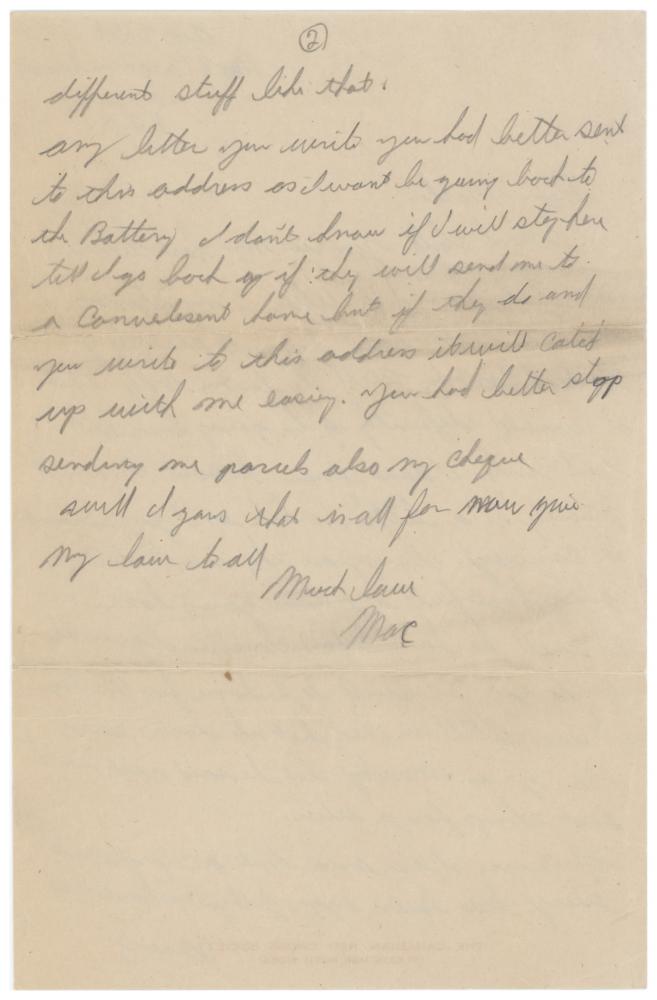 2
different stuff like that.
any letter you write you had better sent
to this address as I wont be going back to
the Battery I don't know if I will stay here
till I go back or if they will send me to
a Convelesent home but if they do and
you write to this address it will catch
up with me easier. You had better stop
sending me parcels also my cheque
well I guess that is all for now give
my love to all
Much love
Mac